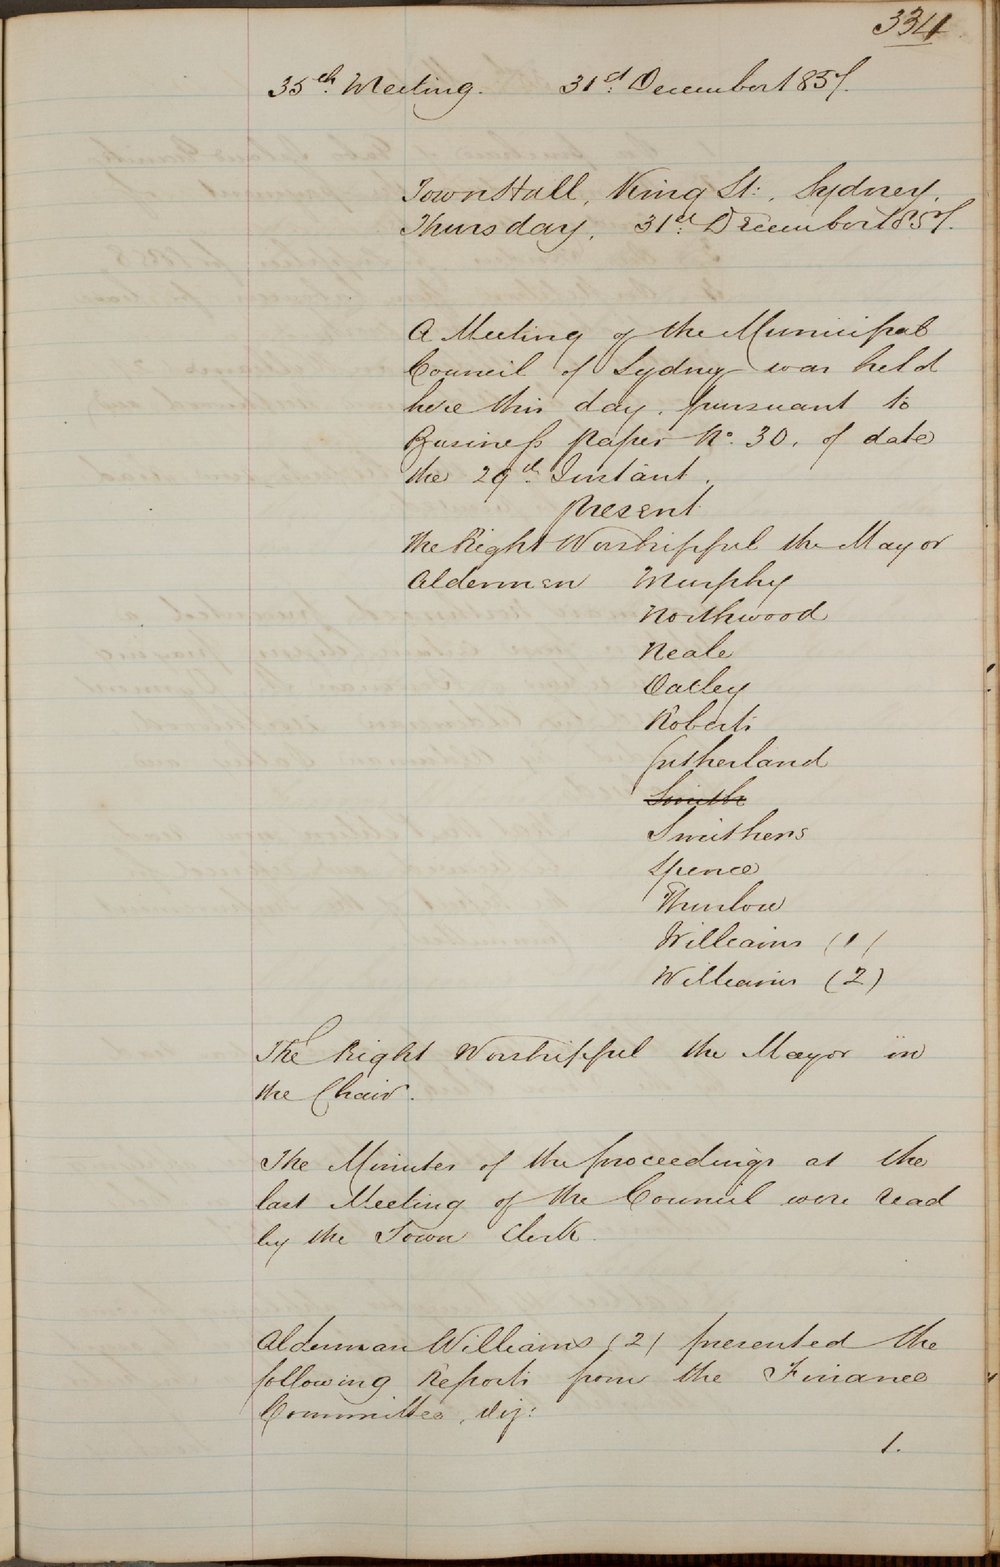 334
35th. Meeting. 31st. December 1857.
Town Hall, King St:, Sydney,
Thursday, 31st. December 1857.
A Meeting of the Municipal
Council of Sydney was held
here this day, pursuant to
Business Paper No. 30, of date
the 29th. Instant.
Present
The Right Worshipful the Mayor
Aldermen Murphy
Northwood
Neale
Oatley
Roberts
Sutherland
Smith
Smithers
Spence
Thurlow
Williams (1)
Williams (2)
The Right Worshipful the Mayor in
the Chair.
The Minutes of the proceedings at the
last Meeting of the Council were read
by the Town Clerk.
Alderman Williams (2) presented the
following Reports from the Finance
Committee, Viz:
1.